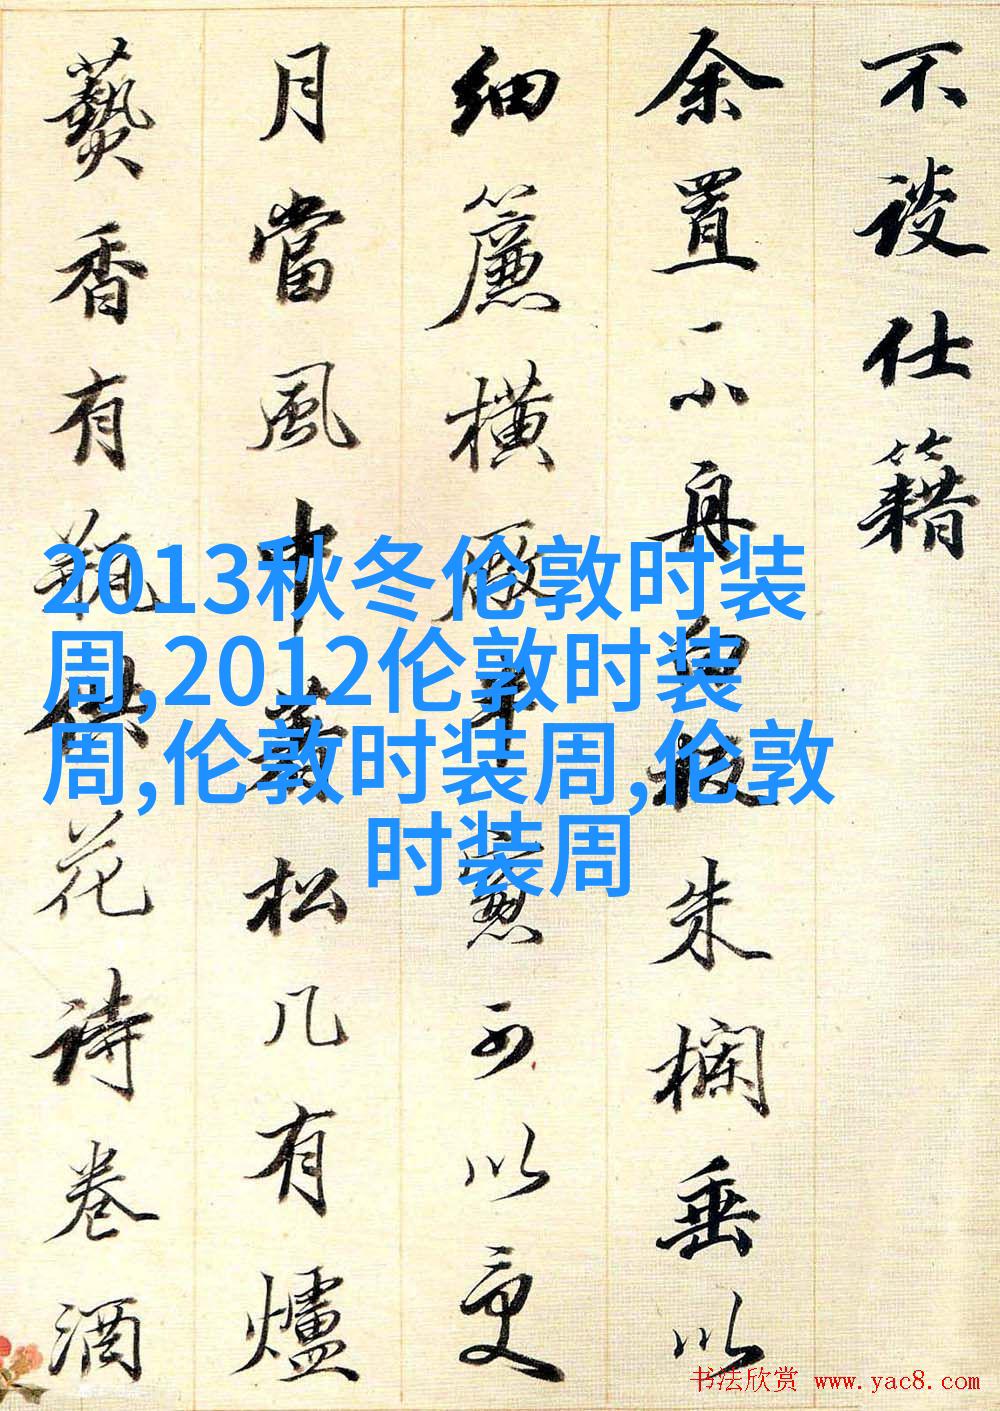 不談仕籍
余置一小舟白板朱欄垂以
細簾橫厰半窻可以受
月當風中松几有爐
爇香有瓶供花詩卷酒
2013秋冬伦敦时装
周,2012伦敦时装
周,伦敦时装周,伦敦
时装周
书法欣赏 www.yac8.com